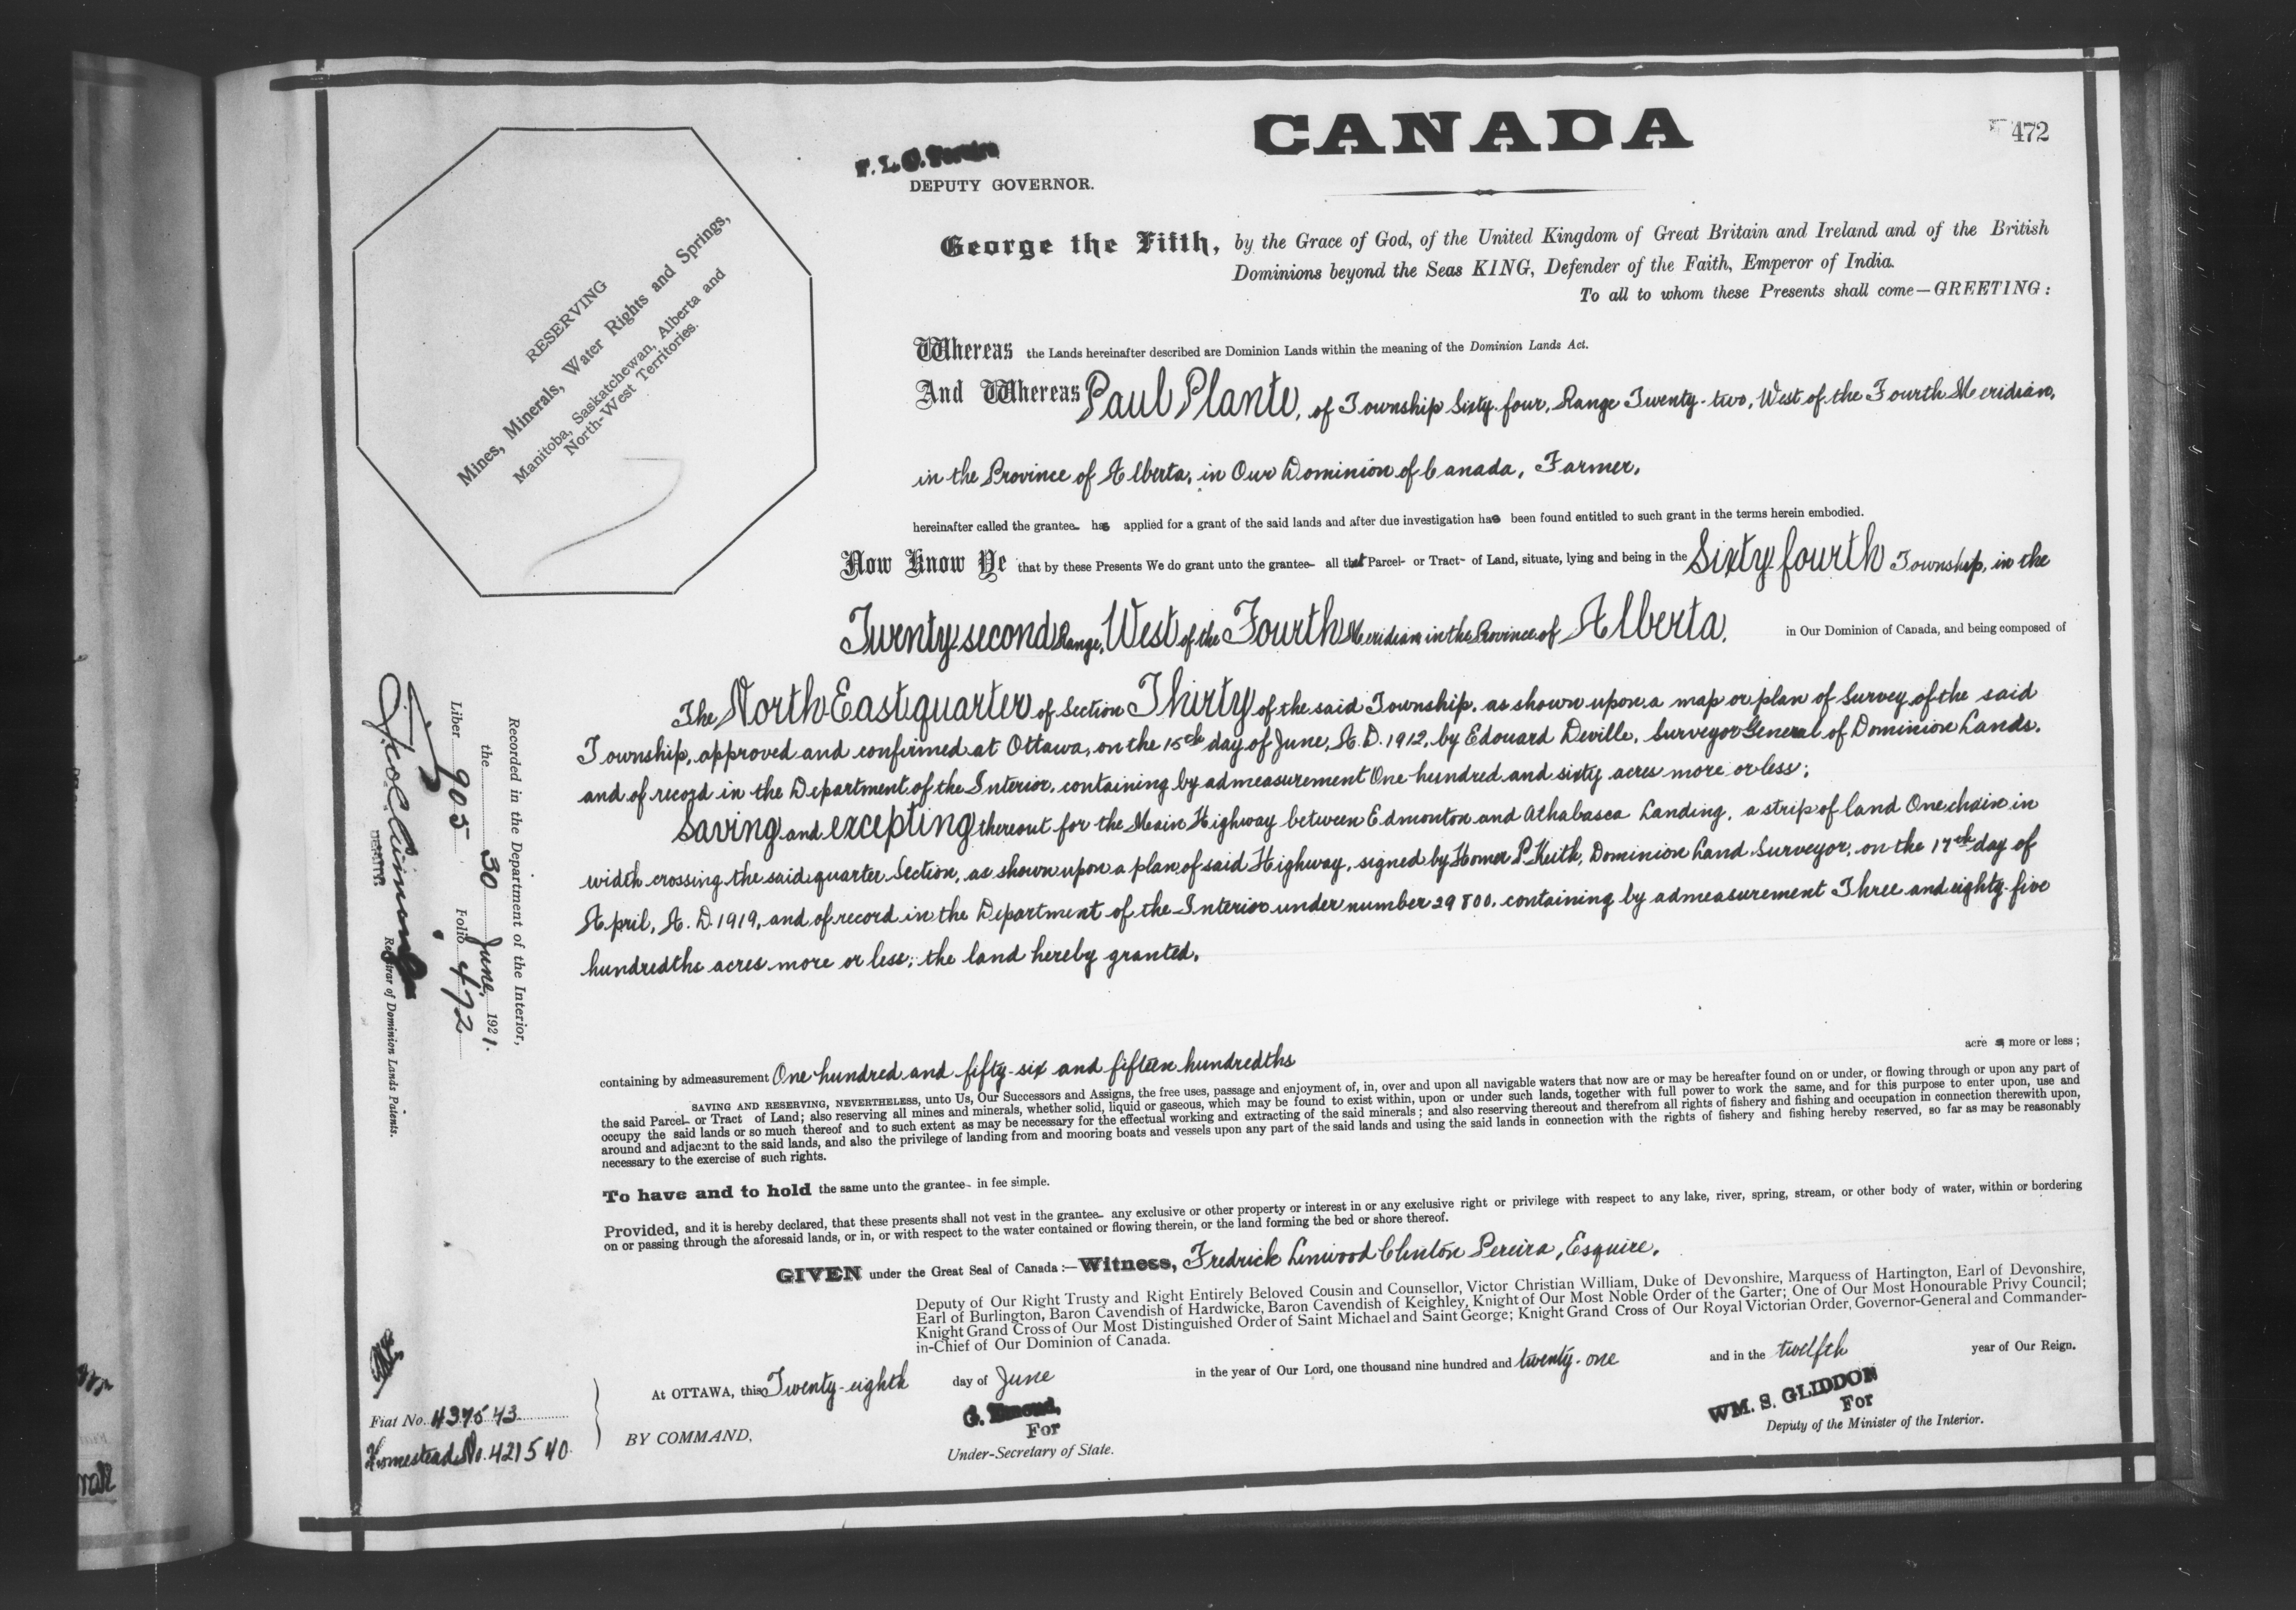 CANADA
472
DEPUTY GOVERNOR.
RESERVING
Mines, Minerals, Water Rights and Springs,
Manitoba, Saskatchewan, Alberta and
North-West Territories.
George the Fifth, by the Grace of God, of the United Kingdom of Great Britain and Ireland and of the British
Dominions beyond the Seas KING, Defender of the Faith, Emperor of India.
To all to whom these Presents shall come—GREETING:
Whereas the Lands hereinafter described are Dominion Lands within the meaning of the Dominion Lands Act.
And Whereas Paul Plante, of Township Sixty-four, Range Twenty-two, West of the Fourth Meridian,
in the Province of Alberta, in Our Dominion of Canada, Farmer,
hereinafter called the grantee has applied for a grant of the said lands and after due investigation has been found entitled to such grant in the terms herein embodied.
Now Know Ye that by these Presents We do grant unto the grantee all that Parcel or Tract of Land, situate, lying and being in the Sixty-fourth Township, in the
Twenty-second Range, West of the Fourth Meridian in the Province of Alberta, in Our Dominion of Canada, and being composed of
The North East quarter of Section Thirty of the said Township, as shown upon a map or plan of Survey of the said
Township, approved and confirmed at Ottawa, on the 15th day of June, A.D. 1912, by Edouard Deville, Surveyor General of Dominion Lands,
and of record in the Department of the Interior, containing by admeasurement One hundred and sixty acres more or less;
Saving and excepting thereout for the Main Highway between Edmonton and Athabasca Landing, a strip of land One chain in
width crossing the said quarter Section, as shown upon a plan of said Highway, signed by Homer P. Keith, Dominion Land Surveyor, on the 17th day of
April, A.D. 1919, and of record in the Department of the Interior under number 29800, containing by admeasurement Three and eighty-five
hundredths acres more or less; the land hereby granted,
containing by admeasurement One hundred and fifty-six and fifteen hundredths acres more or less;
SAVING AND RESERVING, NEVERTHELESS, unto Us, Our Successors and Assigns, the free uses, passage and enjoyment of, in, over and upon all navigable waters that now are or may be hereafter found on or under, or flowing through or upon any part of
the said Parcel or Tract of Land; also reserving all mines and minerals, whether solid, liquid or gaseous, which may be found to exist within, upon or under such lands, together with full power to work the same, and for this purpose to enter upon, use and
occupy the said lands or so much thereof and to such extent as may be necessary for the effectual working and extracting of the said minerals; and also reserving thereout and therefrom all rights of fishery and fishing and occupation in connection therewith upon,
around and adjacent to the said lands, and also the privilege of landing from and mooring boats and vessels upon any part of the said lands and using the said lands in connection with the rights of fishery and fishing hereby reserved, so far as may be reasonably
necessary to the exercise of such rights.
To have and to hold the same unto the grantee in fee simple.
Provided, and it is hereby declared, that these presents shall not vest in the grantee any exclusive or other property or interest in or any exclusive right or privilege with respect to any lake, river, spring, stream, or other body of water, within or bordering
on or passing through the aforesaid lands, or in, or with respect to the water contained or flowing therein, or the land forming the bed or shore thereof.
GIVEN under the Great Seal of Canada:—Witness, Fredrick Linwood Clinton Pereira, Esquire,
Deputy of Our Right Trusty and Right Entirely Beloved Cousin and Counsellor, Victor Christian William, Duke of Devonshire, Marquess of Hartington, Earl of Devonshire,
Earl of Burlington, Baron Cavendish of Hardwicke, Baron Cavendish of Keighley, Knight of Our Most Noble Order of the Garter; One of Our Most Honourable Privy Council;
Knight Grand Cross of Our Most Distinguished Order of Saint Michael and Saint George; Knight Grand Cross of Our Royal Victorian Order, Governor-General and Commander-
in-Chief of Our Dominion of Canada.
At OTTAWA, this Twenty-eighth day of June in the year of Our Lord, one thousand nine hundred and twenty-one and in the twelfth year of Our Reign.
BY COMMAND,
For
Under-Secretary of State.
WM. S. GLIDDON
For
Deputy of the Minister of the Interior.
Recorded in the Department of the Interior,
the 30 June, 1921.
Liber 905 Folio 472
Registrar of Dominion Lands Patents.
Fiat No. 437543
Homestead No. 421540